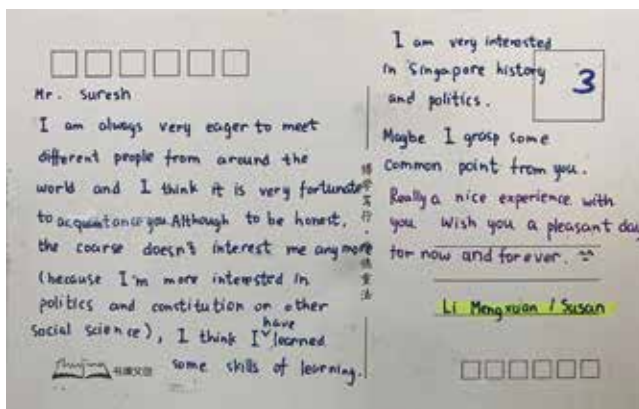 Mr. Suresh
I am always very eager to meet
different people from around the
world and I think it is very fortunate
to acquaintance you. Although to be honest,
the coarse doesn't interest me any more
(because I'm more interested in
politics and constitution or other
social science), I think I have learned
some skills of learning.
I am very interested
in Singapore history
and politics.
3
Maybe I grasp some
common point from you.
Really a nice experience with
you. Wish you a pleasant day
for now and forever.
Li Mengxuan / Susan